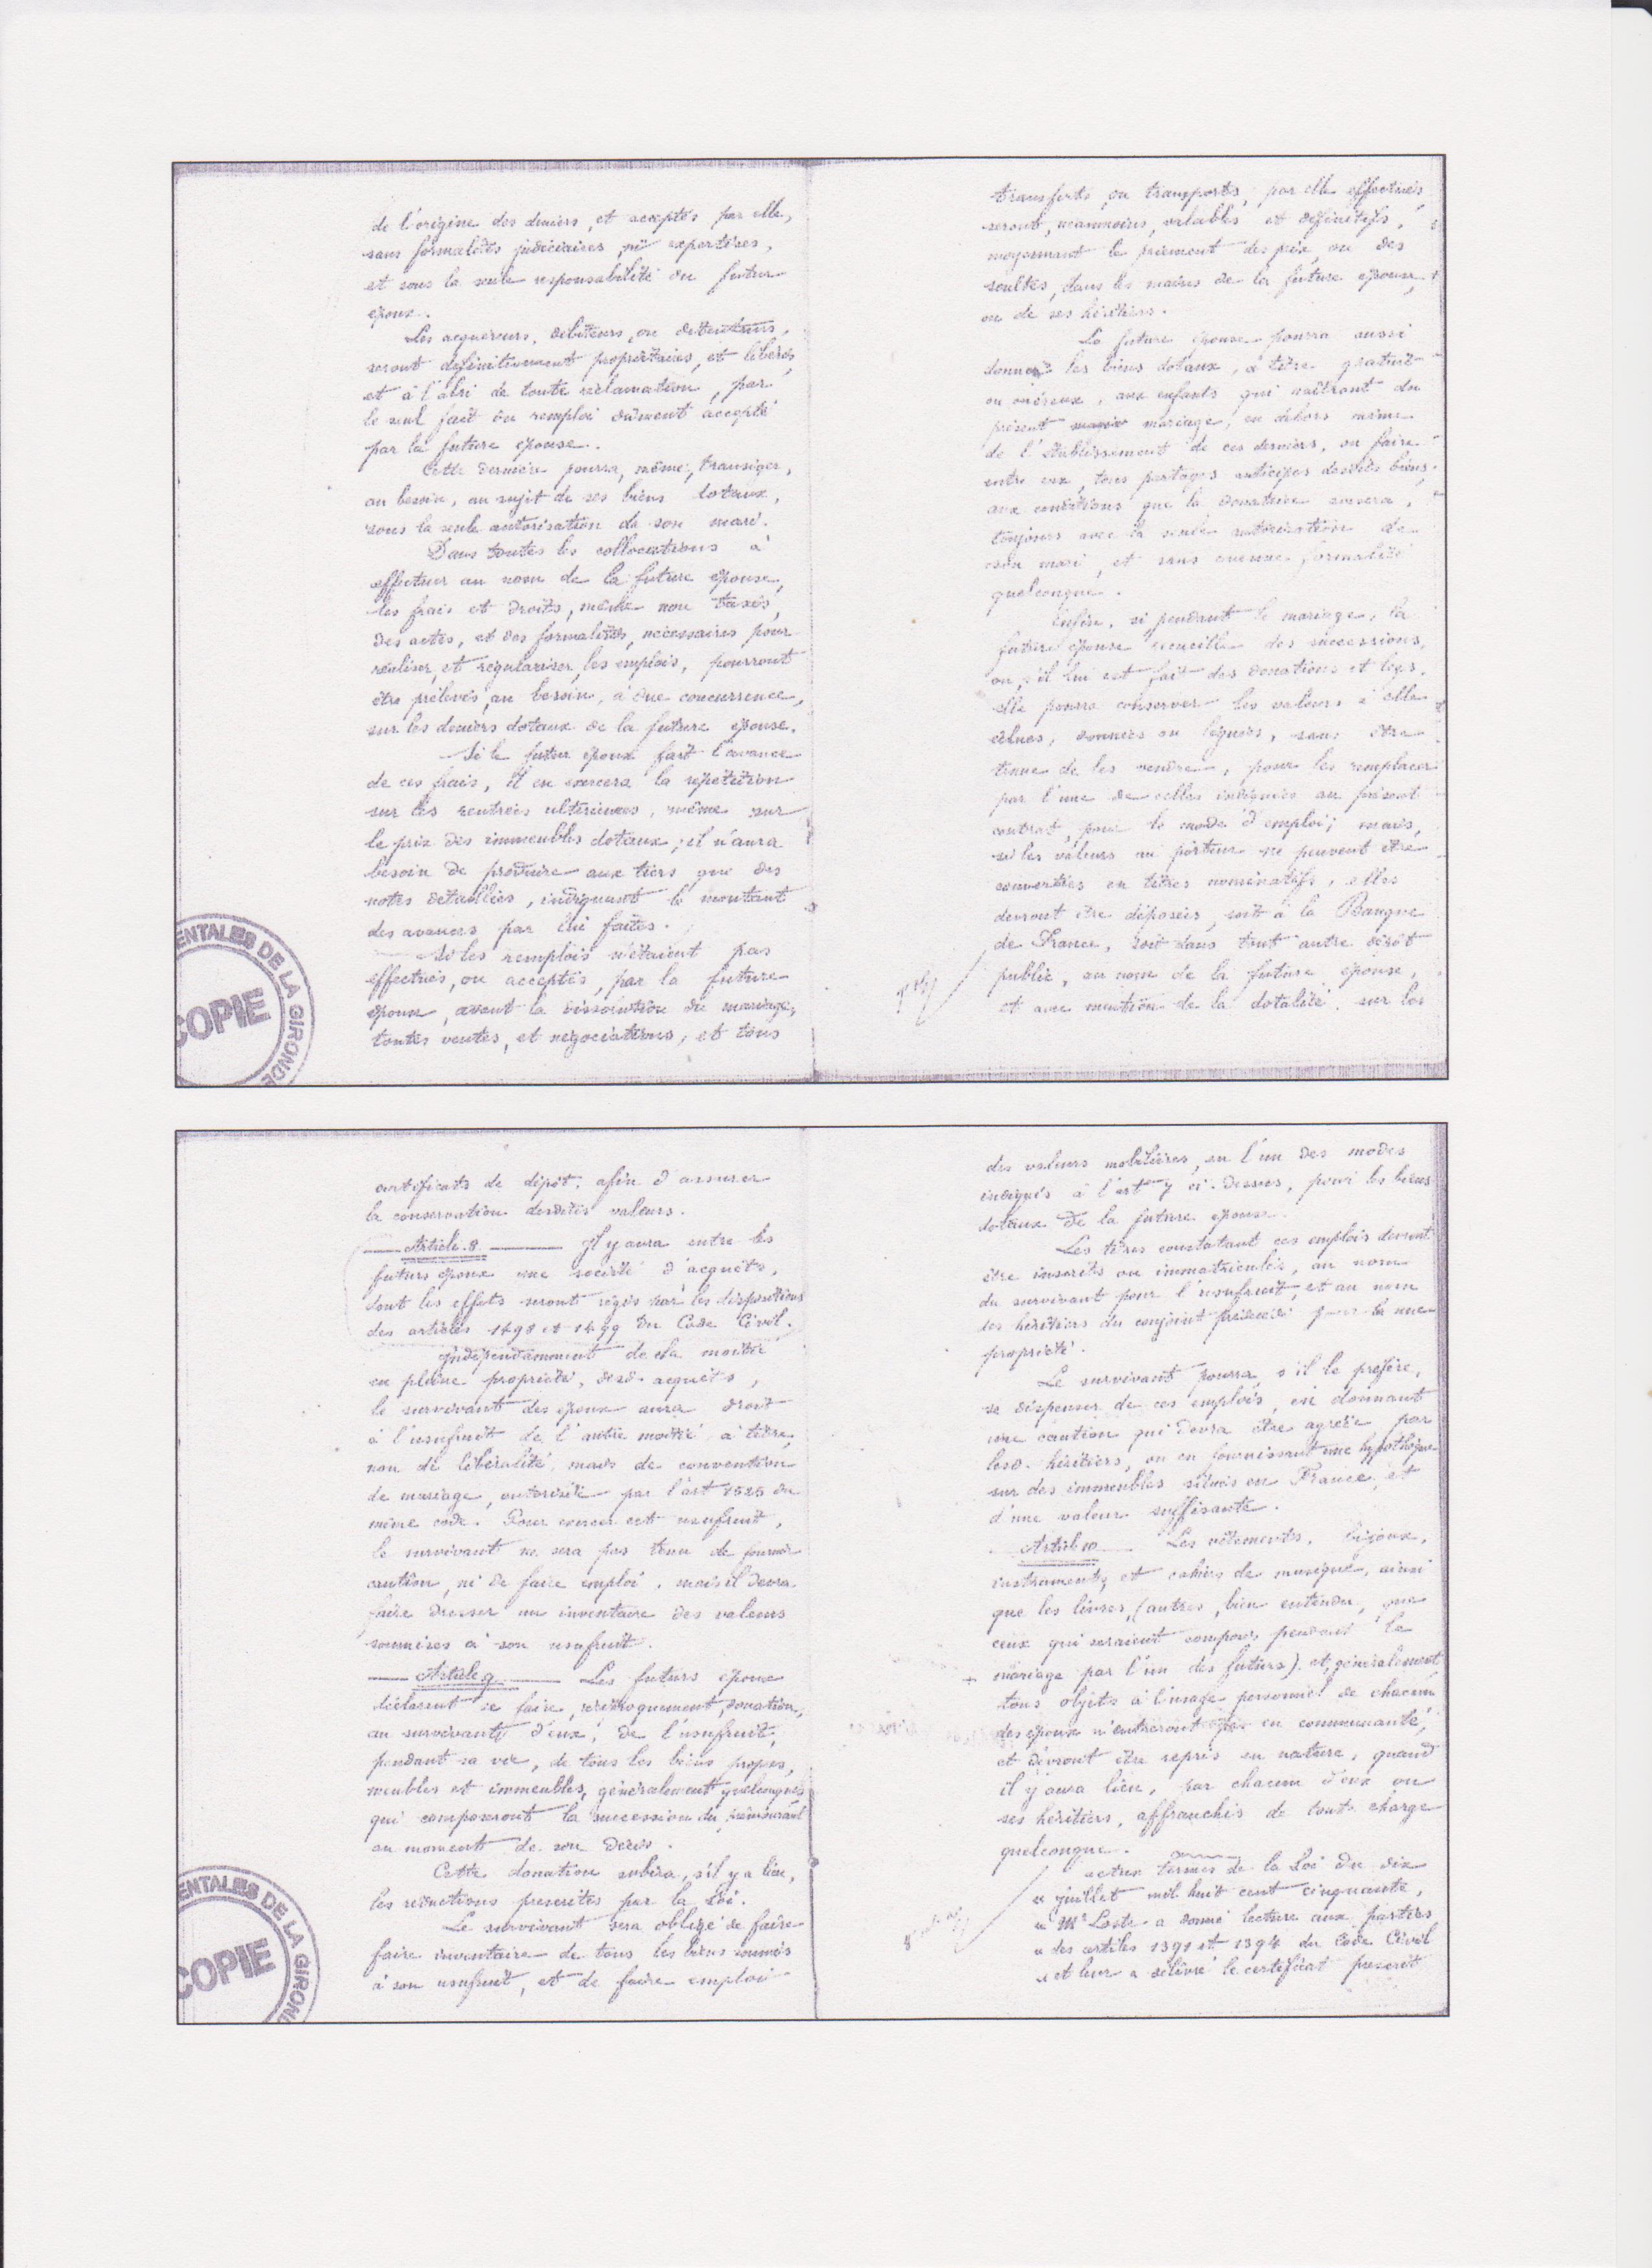 de l'origine des deniers, et acceptés par elle,
sans formalités judiciaires, ni expertises,
et sous la seule responsabilité du futur
époux.
Les acquéreurs, débiteurs, ou détenteurs,
seront définitivement propriétaires, et libérés,
et à l'abri de toute réclamation, par
le seul fait du remploi dûment accepté
par la future épouse.
Cette dernière pourra, même, transiger,
au besoin, au sujet de ses biens dotaux,
sous la seule autorisation de son mari.
Dans toutes les collocations à
effectuer au nom de la future épouse,
les frais et droits, même non taxés,
des actes, et des formalités, nécessaires pour
réaliser, et régulariser, les emplois, pourront
être prélevés, au besoin, à due concurrence,
sur les deniers dotaux de la future épouse.
Si le futur époux fait l'avance
de ces frais, il en exercera la répétition
sur les rentrées ultérieures, même sur
le prix des immeubles dotaux; il n'aura
besoin de produire aux tiers que des
notes détaillées, indiquant le montant
des avances par lui faites.
Si les remplois n'étaient pas
effectués, ou acceptés, par la future
épouse, avant la dissolution du mariage,
toutes ventes, et négociations, et tous
ENTALES DE LA GIRONDE
COPIE
transferts, ou transports, par elle effectués
seront, néanmoins, valables et définitifs,
moyennant le paiement des prix, ou des
soultes, dans les mains de la future épouse,
ou de ses héritiers.
La future épouse pourra aussi
donner les biens dotaux, à titre gratuit
ou onéreux, aux enfants qui naîtront du
présent mariage, en dehors même
de l'établissement de ces derniers, ou faire
entre eux, tous partages anticipés desdits biens,
aux conditions que la donatrice avisera,
toujours avec la seule autorisation de
son mari, et sans aucune formalité
quelconque.
Enfin, si pendant le mariage, la
future épouse recueille des successions,
ou s'il lui est fait des donations et legs,
elle pourra conserver les valeurs à elle
échues, données ou léguées, sans être
tenue de les vendre, pour les remplacer
par l'une de celles indiquées au présent
contrat, pour le mode d'emploi; mais,
si les valeurs au porteur ne peuvent être
converties en titres nominatifs, elles
devront être déposées, soit à la Banque
de France, soit dans tout autre dépôt
public, au nom de la future épouse,
et avec mention de la dotalité, sur les
certificats de dépôt, afin d'assurer
la conservation desdites valeurs.
Article 8. Il y aura entre les
futurs époux une société d'acquêts,
dont les effets seront régis par les dispositions
des articles 1498 et 1499 du Code Civil.
Indépendamment de la moitié
en pleine propriété, desd. acquêts,
le survivant des époux aura droit
à l'usufruit de l'autre moitié à titre,
non de libéralité, mais de convention
de mariage, autorisée par l'art 1525 du
même code. Pour exercer cet usufruit,
le survivant ne sera pas tenu de fournir
caution, ni de faire emploi, mais il devra
faire dresser un inventaire des valeurs
soumises à son usufruit.
Article 9. Les futurs époux
déclarent se faire, réciproquement, donation,
au survivant d'eux, de l'usufruit,
pendant sa vie, de tous les biens propres,
meubles et immeubles, généralement quelconques
qui composeront la succession du prémourant
au moment de son décès.
Cette donation subira, s'il y a lieu,
les réductions prescrites par la Loi.
Le survivant sera obligé de faire
faire inventaire de tous les biens soumis
à son usufruit, et de faire emploi
ENTALES DE LA GIRONDE
COPIE
des valeurs mobilières, en l'un des modes
indiqués à l'art 7 ci-dessus, pour les biens
dotaux de la future épouse.
Les titres constatant ces emplois devront
être inscrits ou immatriculés, au nom
du survivant pour l'usufruit, et au nom
des héritiers du conjoint prédécédé pour la nue
propriété.
Le survivant pourra, s'il le préfère,
se dispenser de ces emplois, en donnant
une caution qui devra être agréée par
lesd. héritiers, ou en fournissant une hypothèque
sur des immeubles situés en France, et
d'une valeur suffisante.
Article 10 Les vêtements, bijoux,
instruments, et cahiers de musique, ainsi
que les livres, (autres, bien entendu, que
ceux qui seraient composés pendant le
mariage par l'un des futurs) et, généralement
tous objets à l'usage personnel de chacun
des époux n'entreront pas en communauté,
et devront être repris en nature, quand
il y aura lieu, par chacun d'eux ou
ses héritiers, affranchis de toute charge
quelconque.
termes de la Loi du dix
« juillet mil huit cent cinquante,
« Me Loste a donné lecture aux parties
« des articles 1391 et 1394 du Code Civil
« et leur a délivré le certificat prescrit